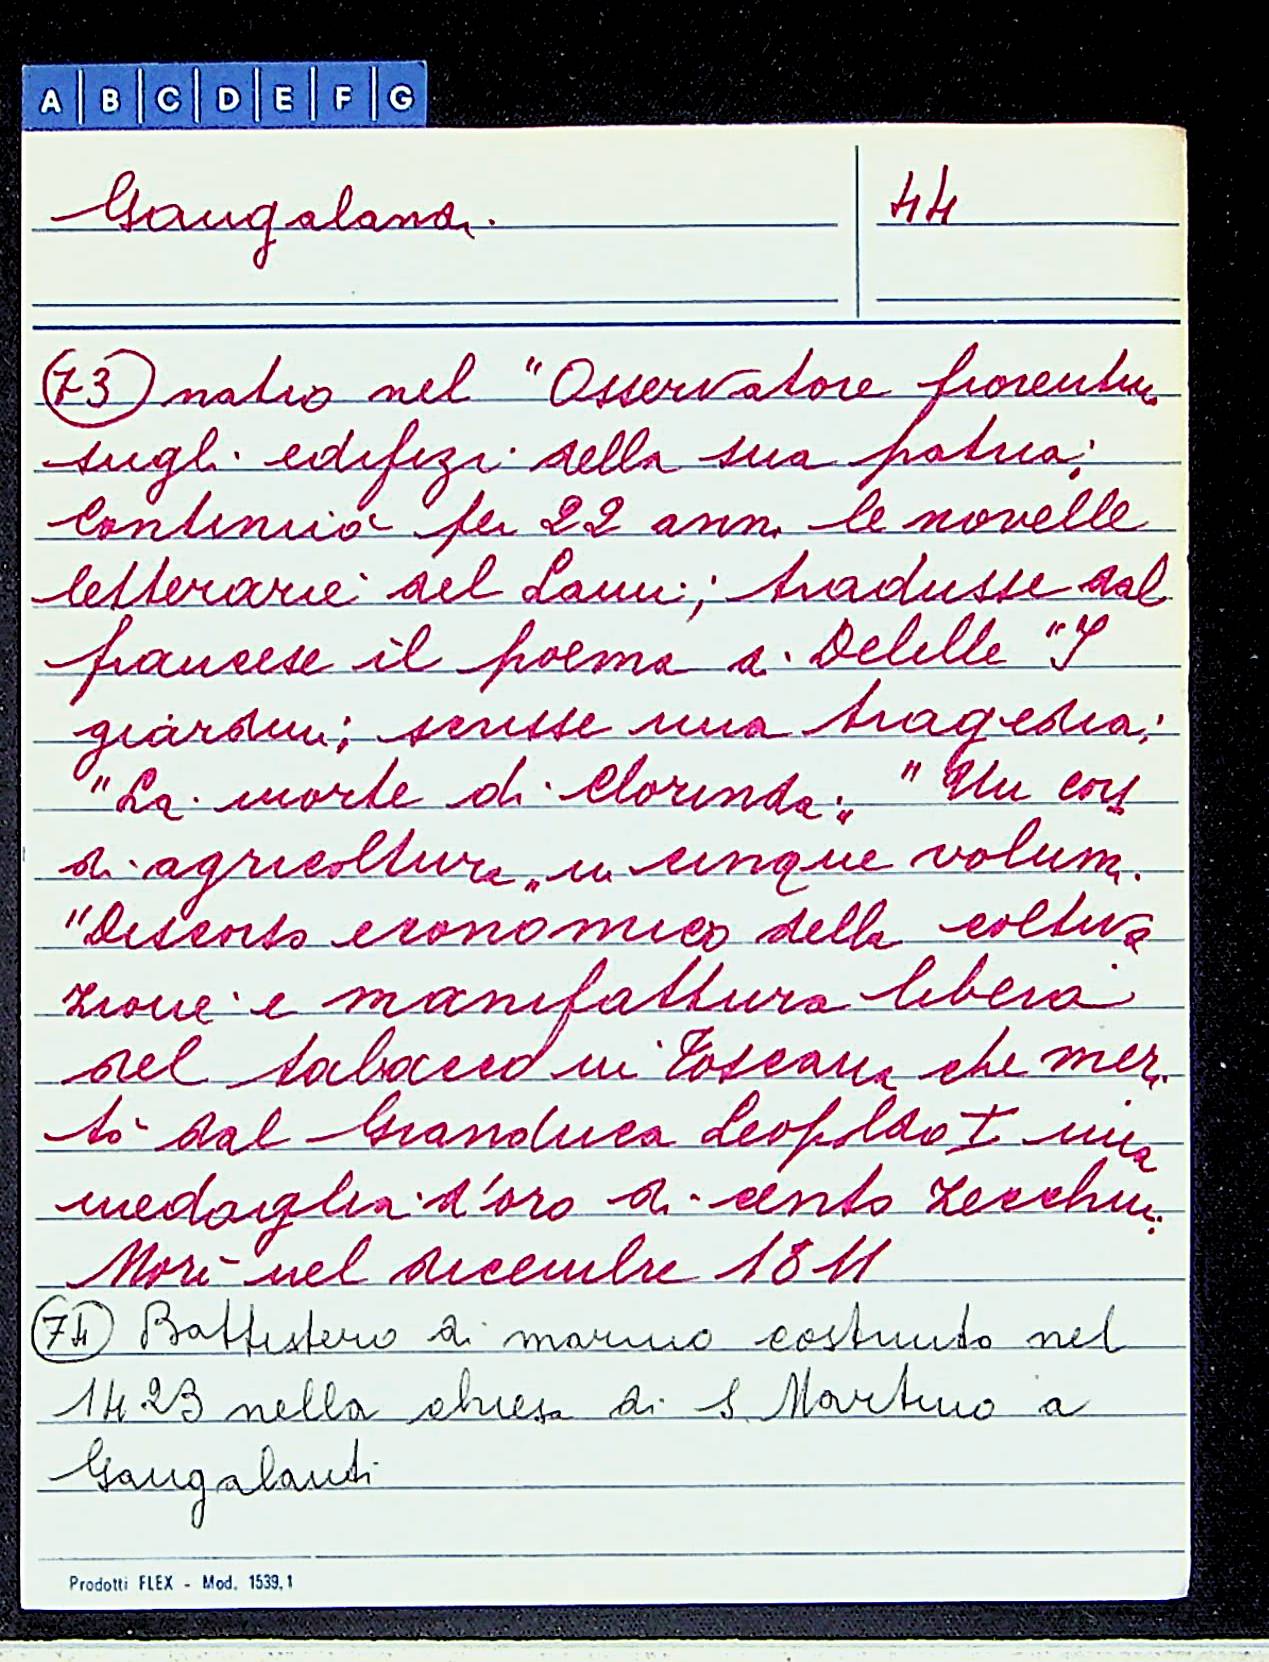 A B C D E F G
Gangalandi
44
(73) natio nel "Osservatore fiorentino
sugli edifizi della sua patria;
Continuò per 22 anni le novelle
letterarie del Lami; tradusse dal
francese il poema di Delille "I
giardini; scrisse una tragedia;
"La morte di Clorinda;" "Un cors
di agricoltura" in cinque volumi.
"Discorso economico della coltiva
zione e manifattura libera
del tabacco in Toscana che meri
tò dal Granduca Leopoldo I una
medaglia d'oro di cento zecchini.
Morì nel dicembre 1811
(74) Battistero di marmo costruito nel
1423 nella chiesa di S. Martino a
Gangalandi
Prodotti FLEX - Mod. 1539.1